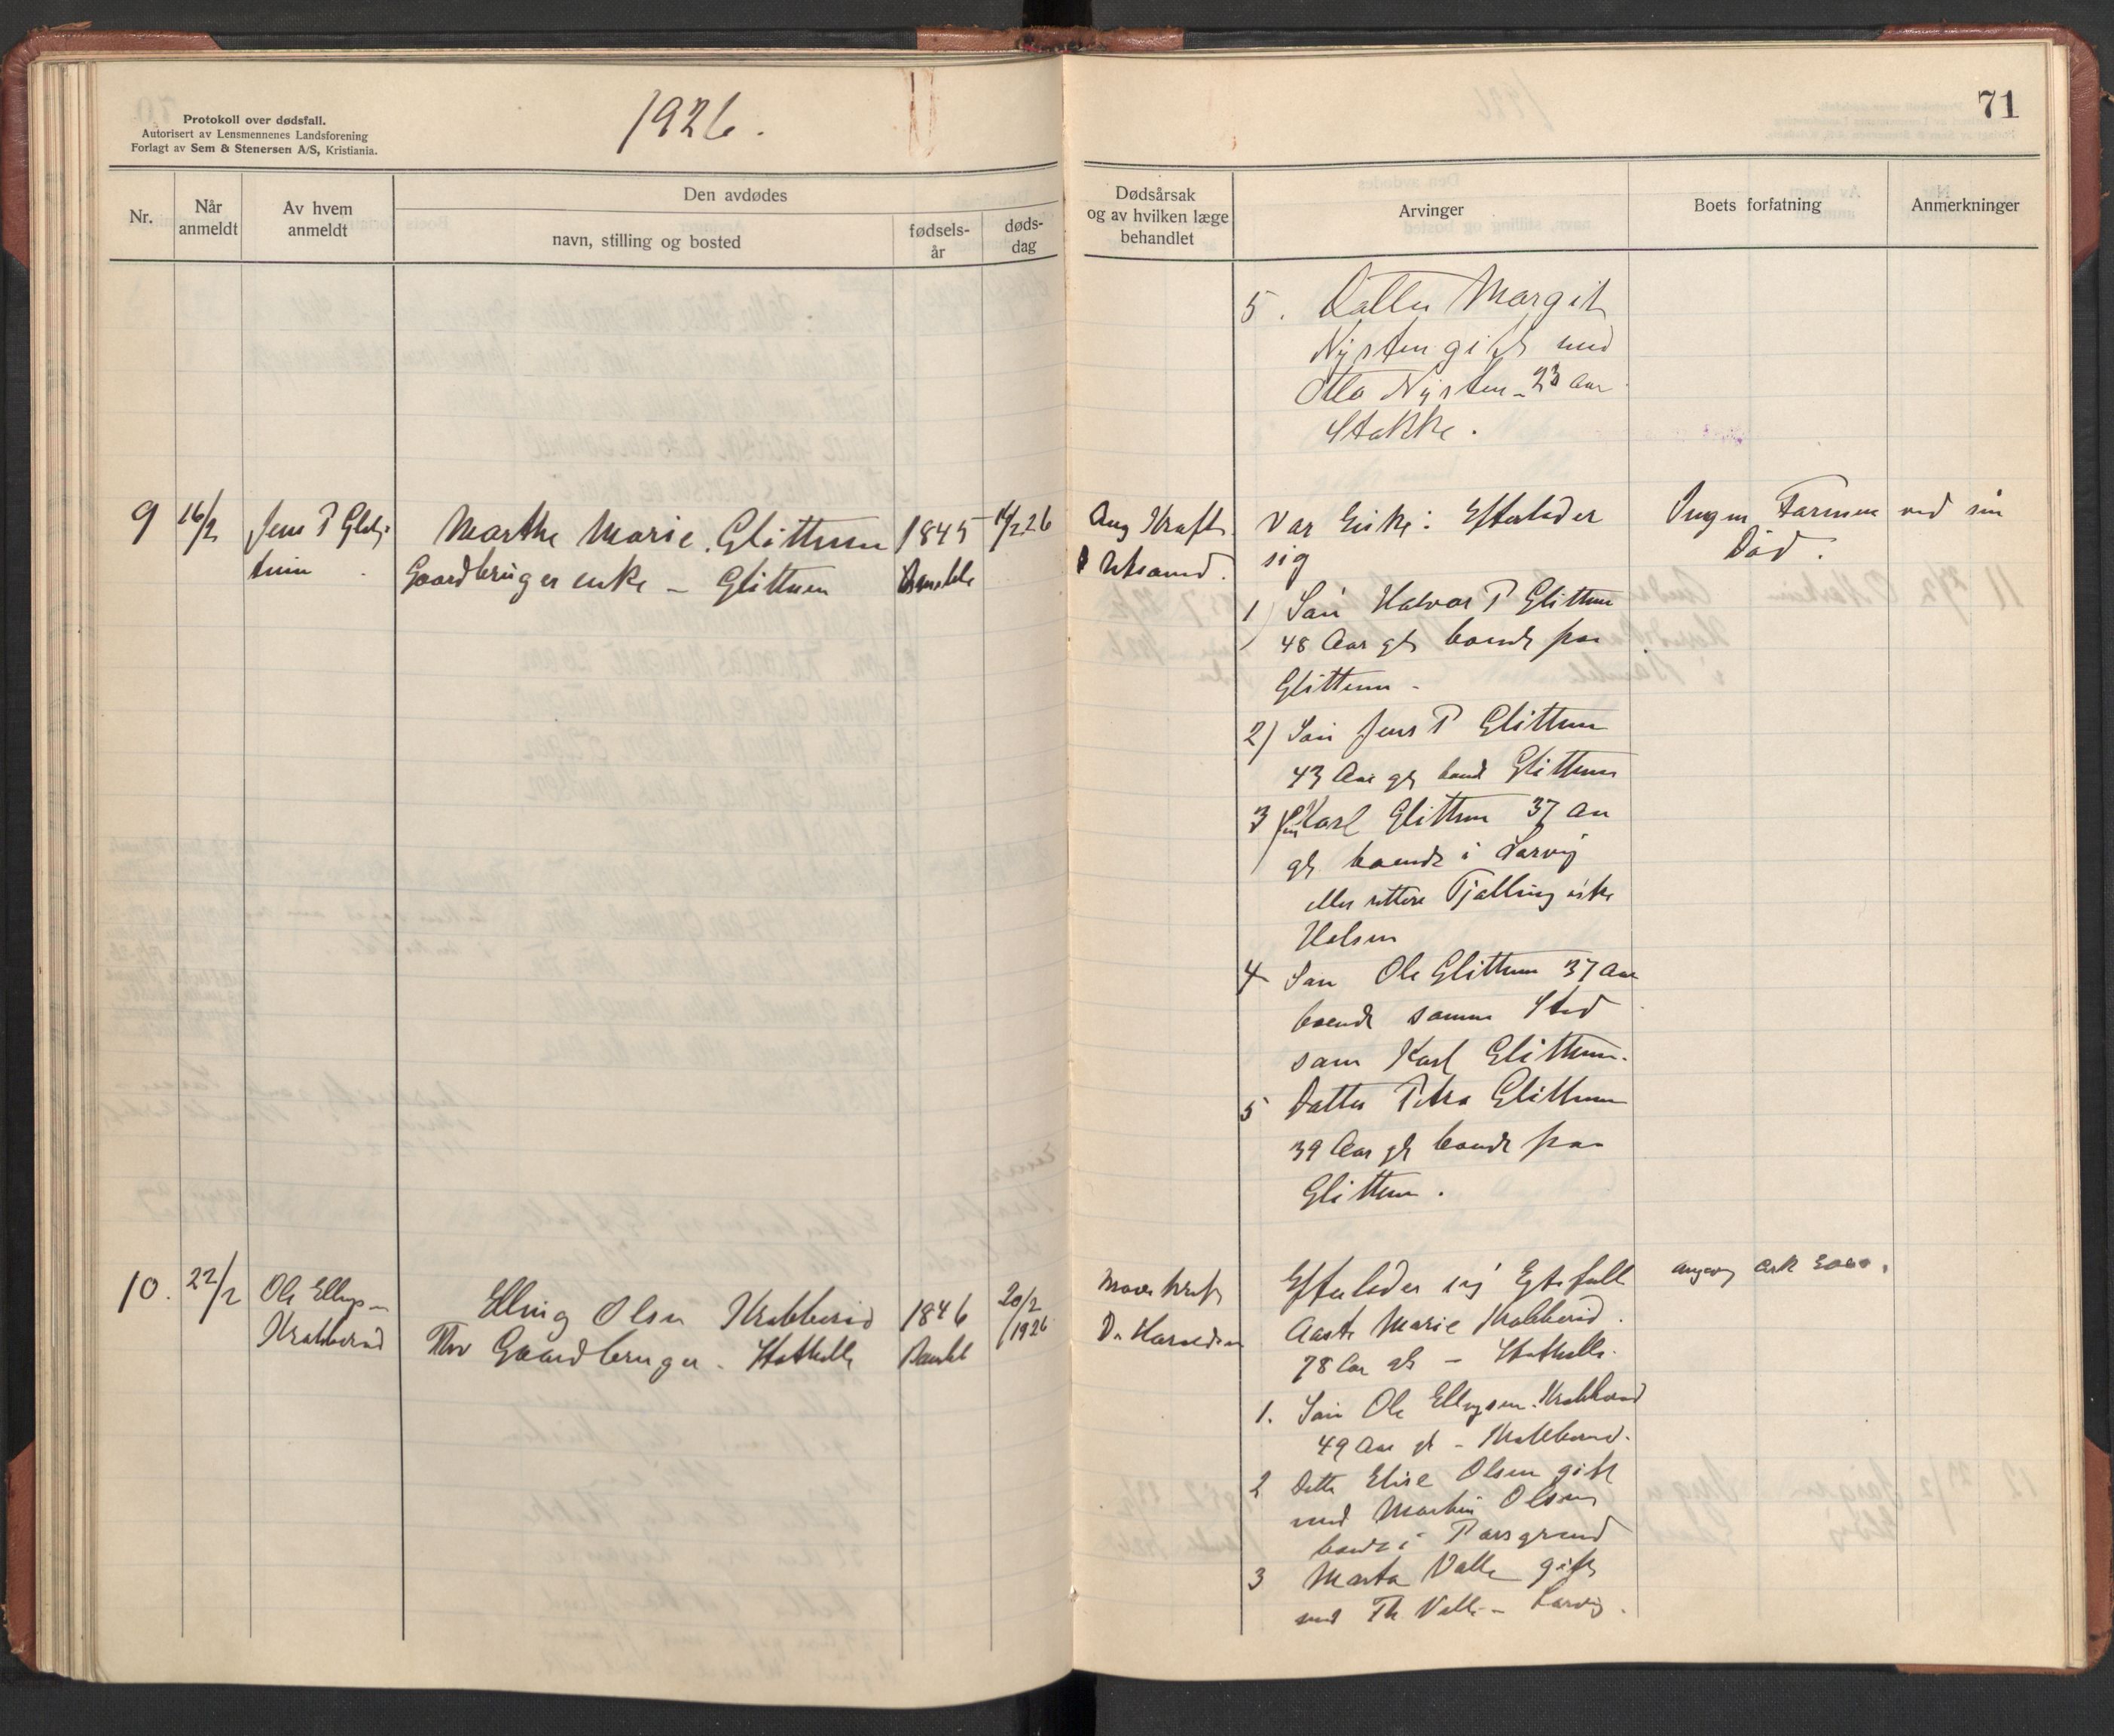 Protokoll over dødsfall.
Autorisert av Lensmennenes Landsforening
Forlagt av Sem & Stenersen A/S, Kristiania.
1926.
71
Nr.
Når
anmeldt
Av hvem
anmeldt
Den avdødes
navn, stilling og bosted
fødsels-
år
døds-
dag
Dødsårsak
og av hvilken læge
behandlet
Arvinger
Boets forfatning
Anmerkninger
5. Datter Margit
Nysten gift med
Otto Nysten - 23 Aar
Stokke.
9
16/2
Jens P Glit-
tum
Marthe Marie Glittum
Gaardbruger enke - Glittum
1845
Bamble
26
Kraft
Var Enke: Efterlader
sig
1) Søn Halvor P Glittum
48 Aar gl boende paa
Glittum -
2) Søn Jens P Glittum
43 Aar gl boende Glittum
3) Søn Karl Glittum 37 Aar
gl boende i Larvig
eller rettere Tjølling
Halsen
4 Søn Ole Glittum 37 Aar
boende samme Sted
som Karl Glittum.
5 Datter Petra Glittum
39 Aar gl boende paa
Glittum.
Ingen Formue ved sin
Død.
10.
22/2
Ole Ellings-
Krabberød
Elling Olsen Krabberød
Gaardbruger. Stathelle
1846
Bamble
20/2
1926
Mave kræft
Dr
Efterlader sig Egtefælle
Aaste Marie Krabberød.
78 Aar gl - Stathelle.
1. Søn Ole Ellingsen Krabberød
49 Aar gl - Krabberød.
2 Datter Elise Olsen gift
med Martin Olsen
boende i Porsgrund
3 Marta Valle gift
med Th. Valle - Larvig.
3000.